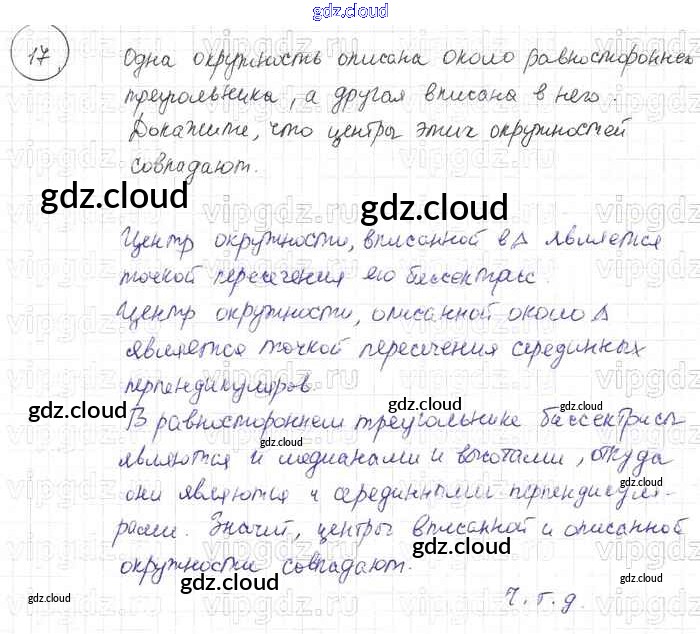 gdz.cloud
17.
Одна окружность описана около равностороннего
треугольника, а другая вписана в него.
Докажите, что центры этих окружностей
совпадают.
gdz.cloud
gdz.cloud
Центр окружности, вписанной в Δ является
точкой пересечения его биссектрис.
Центр окружности, описанной около Δ
является точкой пересечения серединных
перпендикуляров.
gdz.cloud
gdz.cloud
В равностороннем треугольнике биссектрисы
gdz.cloud
являются и медианами и высотами, откуда
gdz.cloud
они являются и серединными перпендикуля-
рами. Значит, центры вписанной и описанной
gdz.cloud
окружности совпадают.
gdz.cloud
gdz.cloud
gdz.cloud
ч.т.д.
gdz.cloud